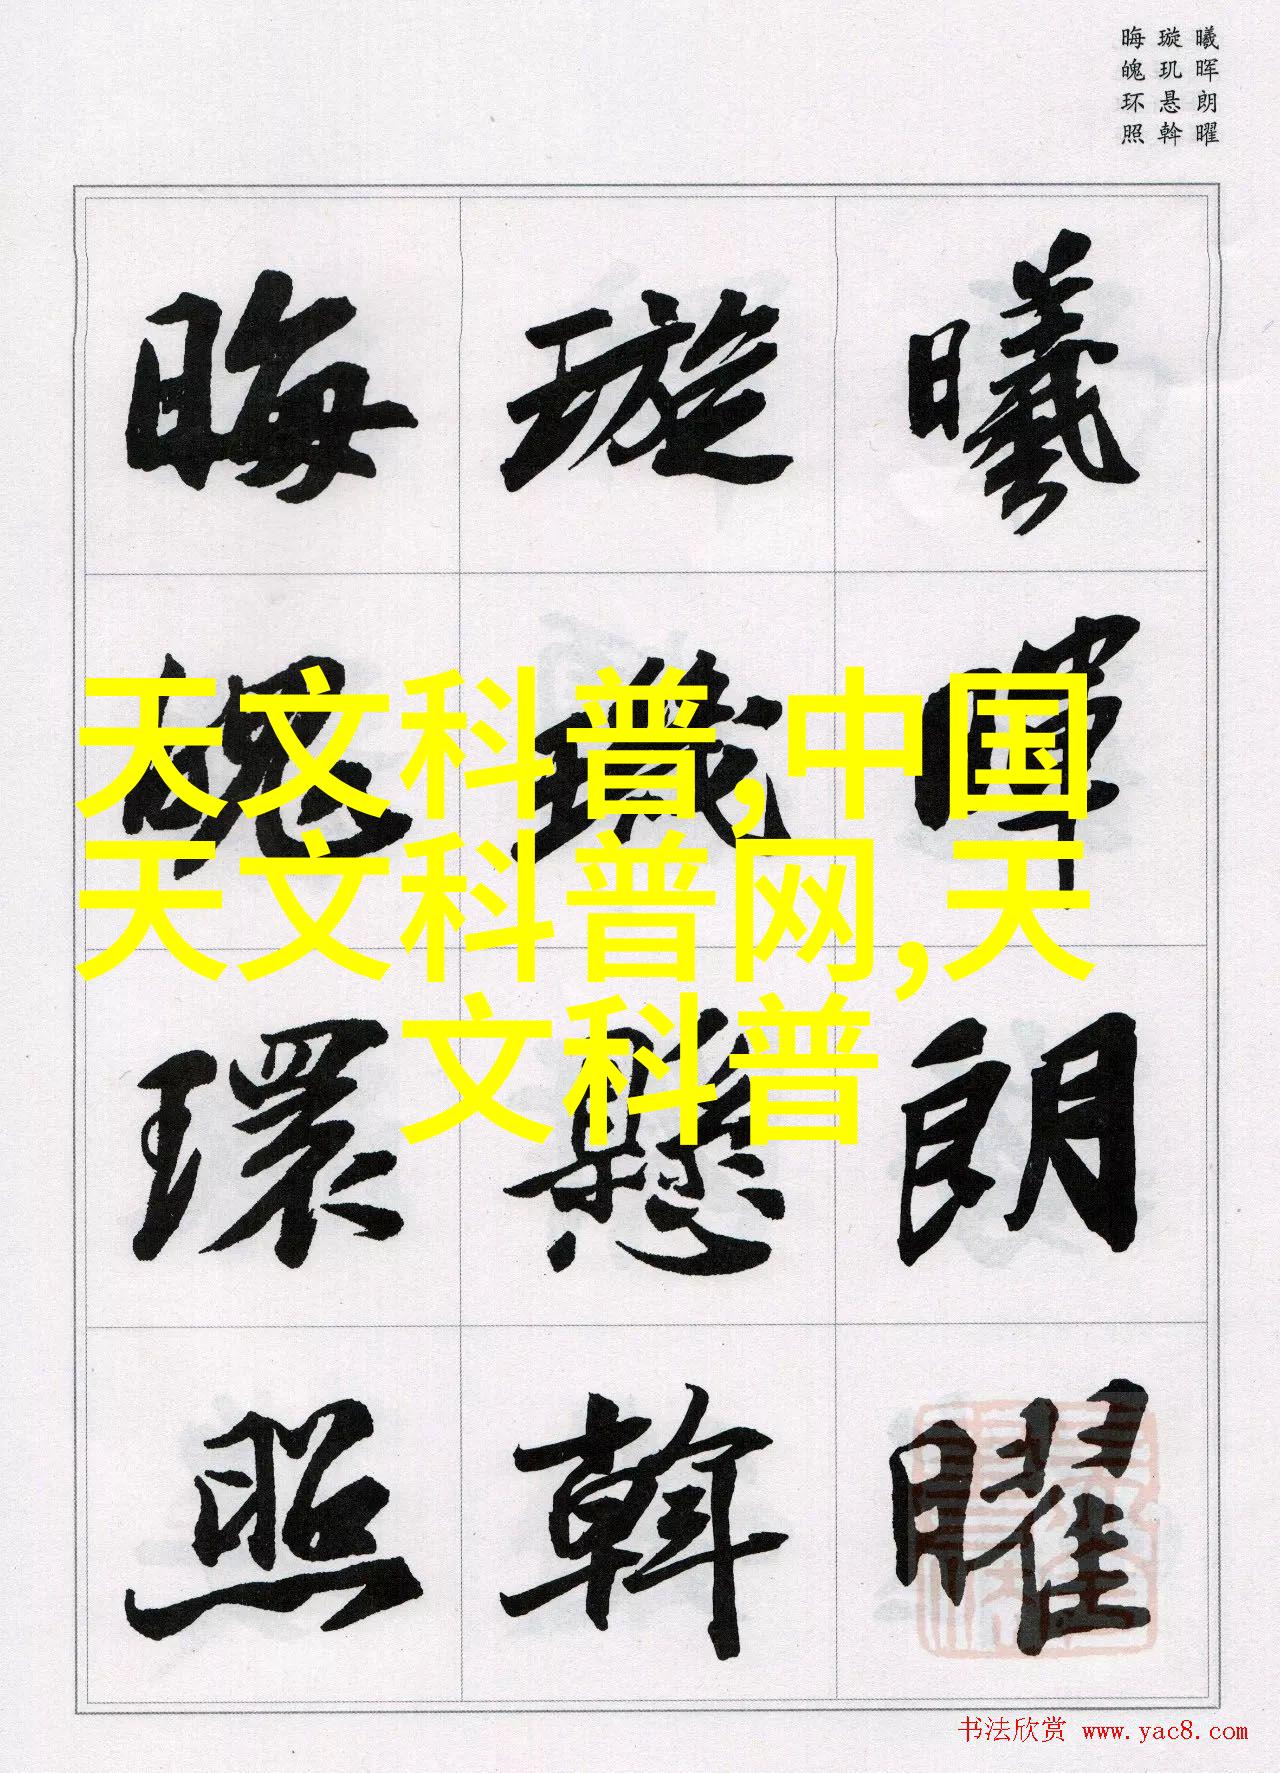 曦晖朗曜
璇玑悬斡
晦魄环照
曦暉朗曜
璇璣懸斡
晦魄環照
天文科普,中国
天文科普网,天
文科普
书法欣赏 www.yac8.com